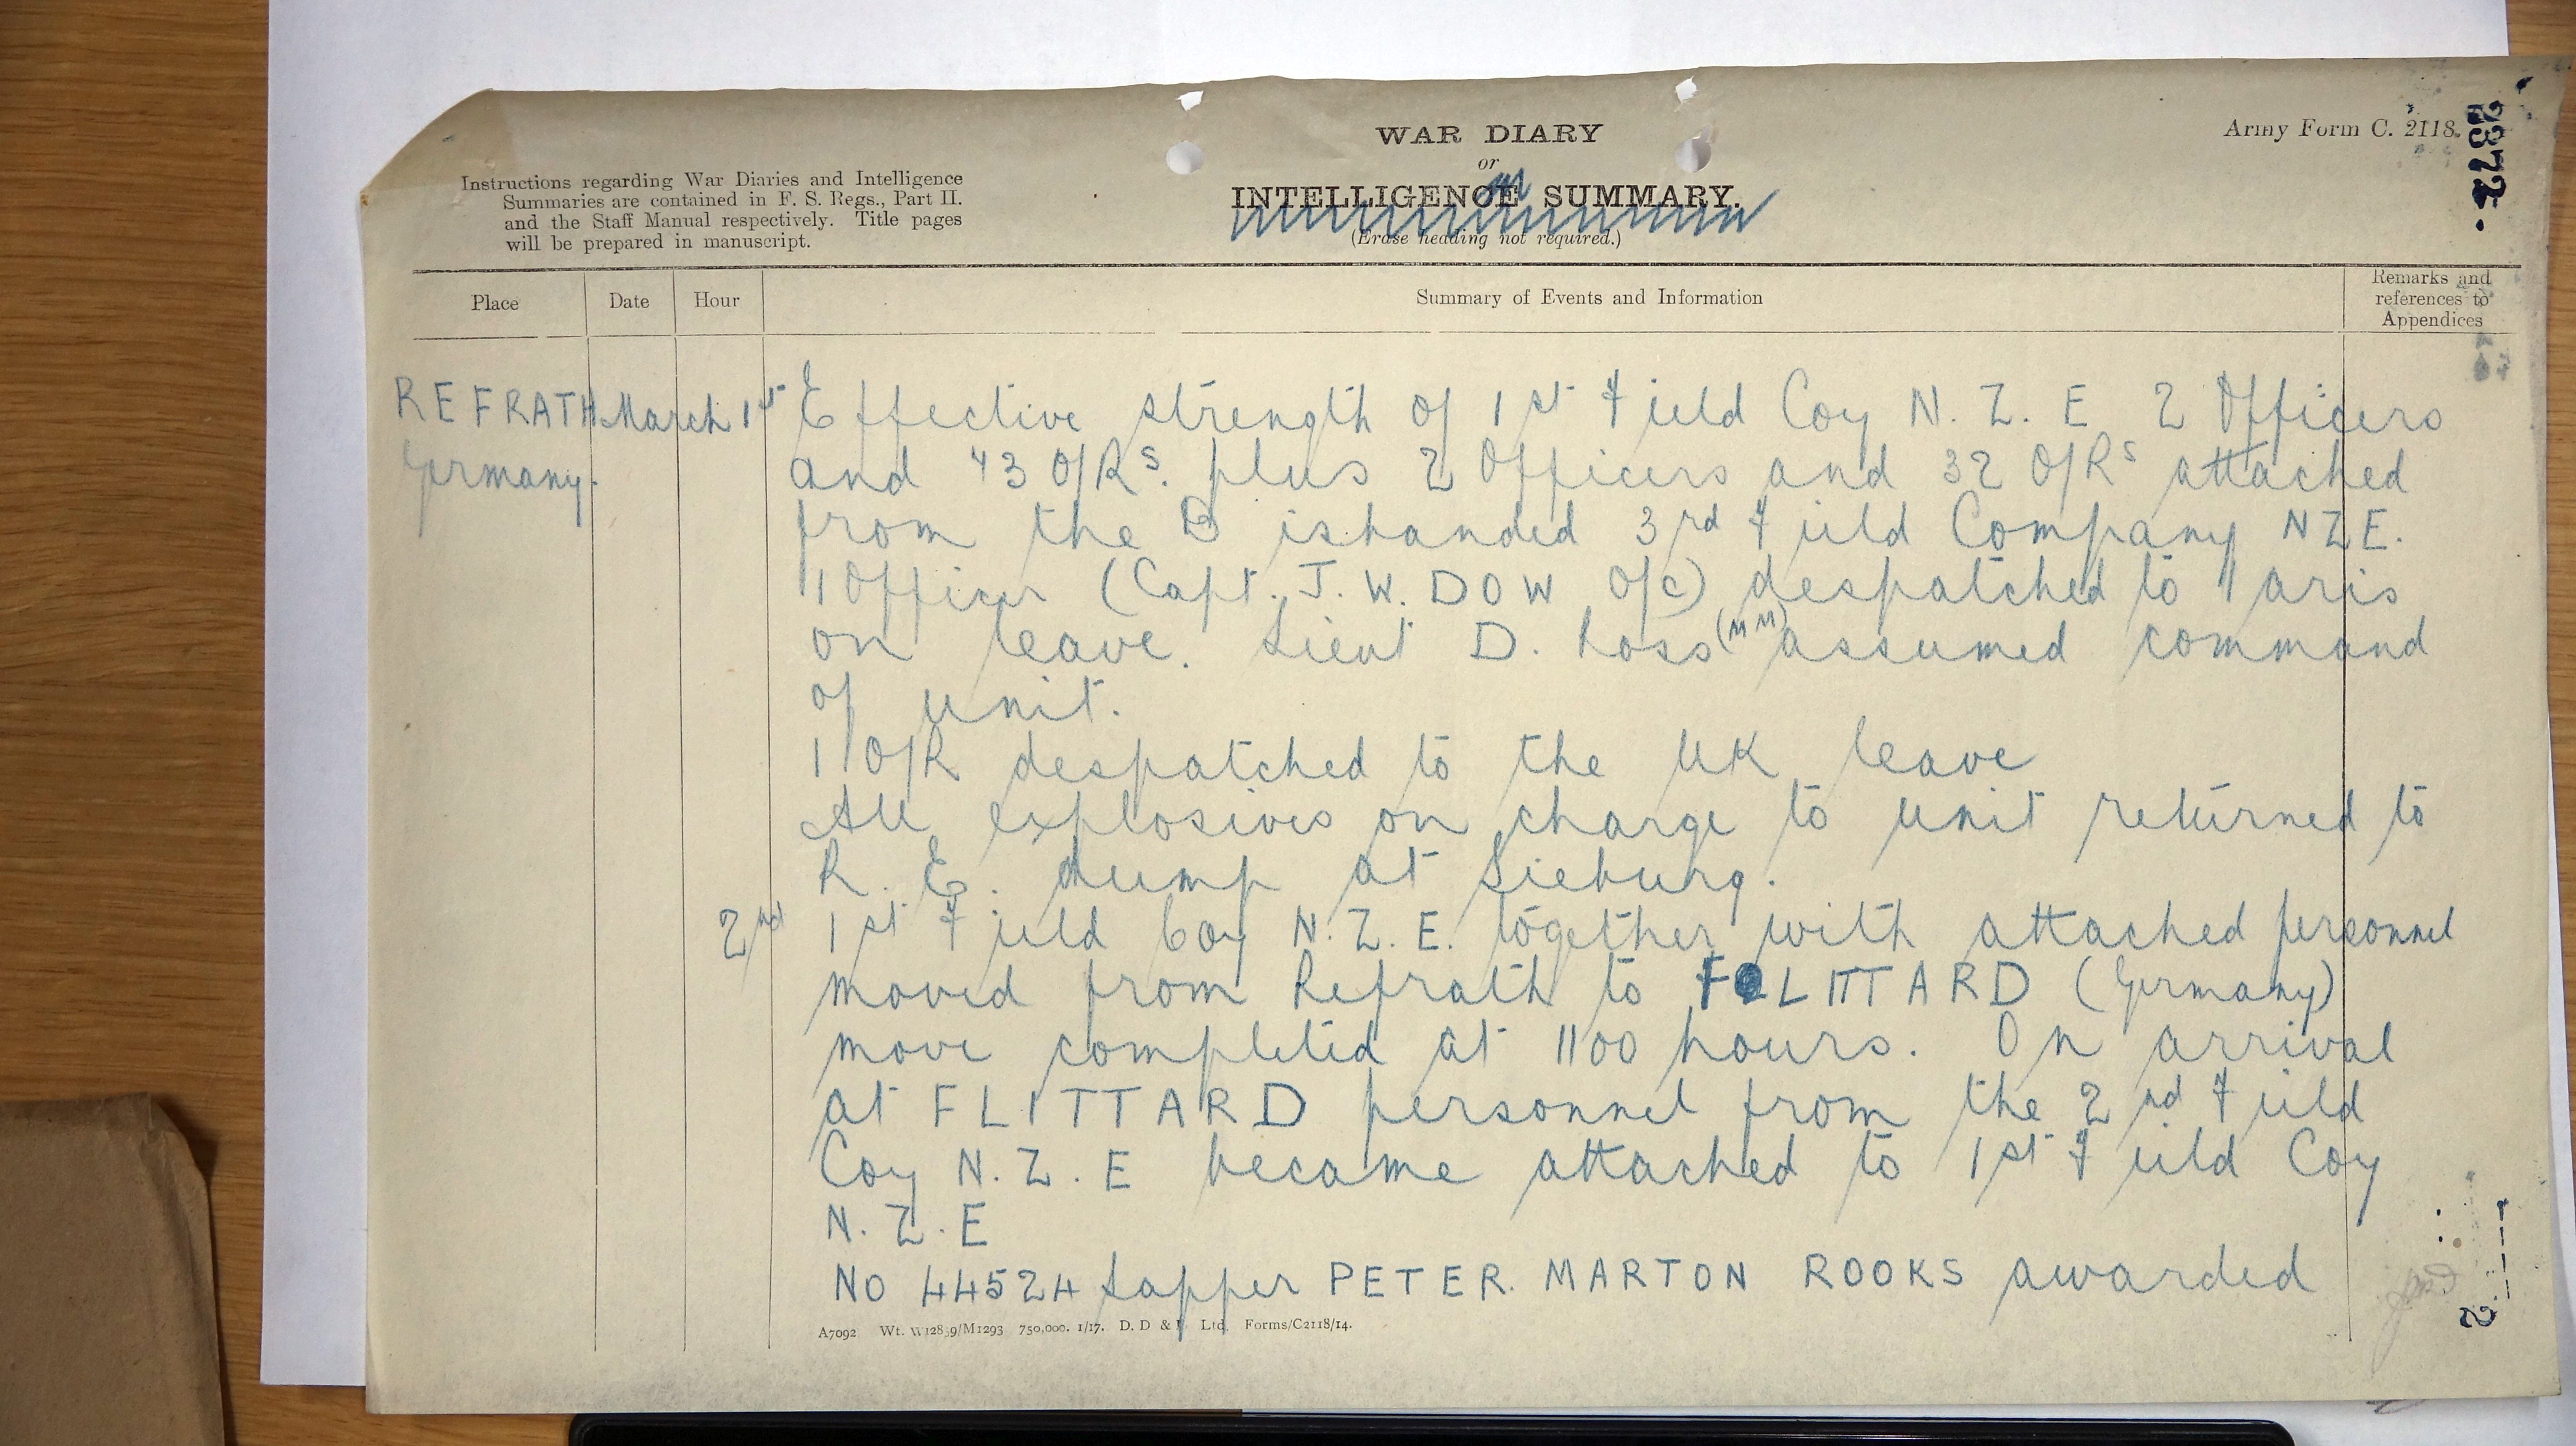 WAR DIARY
or
INTELLIGENCE SUMMARY.
(Erase heading not required.)
Army Form C. 2118.
2372.
Instructions regarding War Diaries and Intelligence
Summaries are contained in F. S. Regs., Part II.
and the Staff Manual respectively. Title pages
will be prepared in manuscript.
Place Date Hour Summary of Events and Information Remarks and references to Appendices
REFRATH March 1st Effective strength of 1st Field Coy N. Z. E 2 Officers
Germany. and 43 O/Rs. plus 2 Officers and 32 O/Rs attached
from the Disbanded 3rd Field Company NZE.
1 Officer (Capt. J. W. DOW O/c) despatched to Paris
on leave. Lieut D. Ross (MM) assumed command
of unit.
1 O/R despatched to the UK leave
All explosives on charge to unit returned to
R. E. dump at Sieburg.
2nd 1st Field Coy N. Z. E. together with attached personnel
moved from Refrath to FLITTARD (Germany)
move completed at 1100 hours. On arrival
at FLITTARD personnel from the 2nd Field
Coy N. Z. E became attached to 1st Field Coy
N. Z. E
NO 44524 Sapper PETER. MARTON ROOKS awarded
A7092 Wt. W1289/M1293 750,000. 1/17. D. D & L. Ltd. Forms/C2118/14.
2